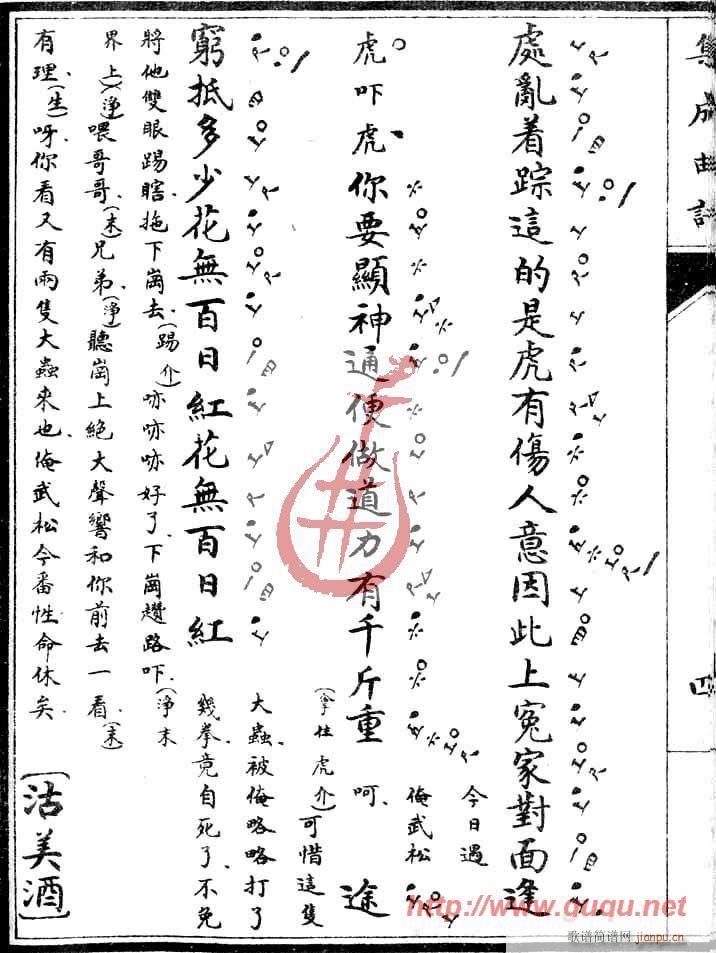 集成曲譜
四
處亂着踪這的是虎有傷人意因此上冤家對面逢
今日遇
俺武松
虎吓虎你要顯神通便做道力有千斤重
呵
途
(拿住虎介)可惜這隻
大蟲被俺略略打了
幾拳竟自死了不免
窮抵多少花無百日紅花無百日紅
將他雙眼踢瞎拖下崗去(踢介)㕽㕽㕽好了下崗趲路吓(淨末
界上)(淨)喂哥哥(末)兄弟(淨)聽崗上絕大聲響和你前去一看(末)
有理(生)呀你看又有兩隻大蟲來也俺武松今番性命休矣
〔沽美酒〕
http://www.guqu.net
歌谱简谱网 jianpu.cn